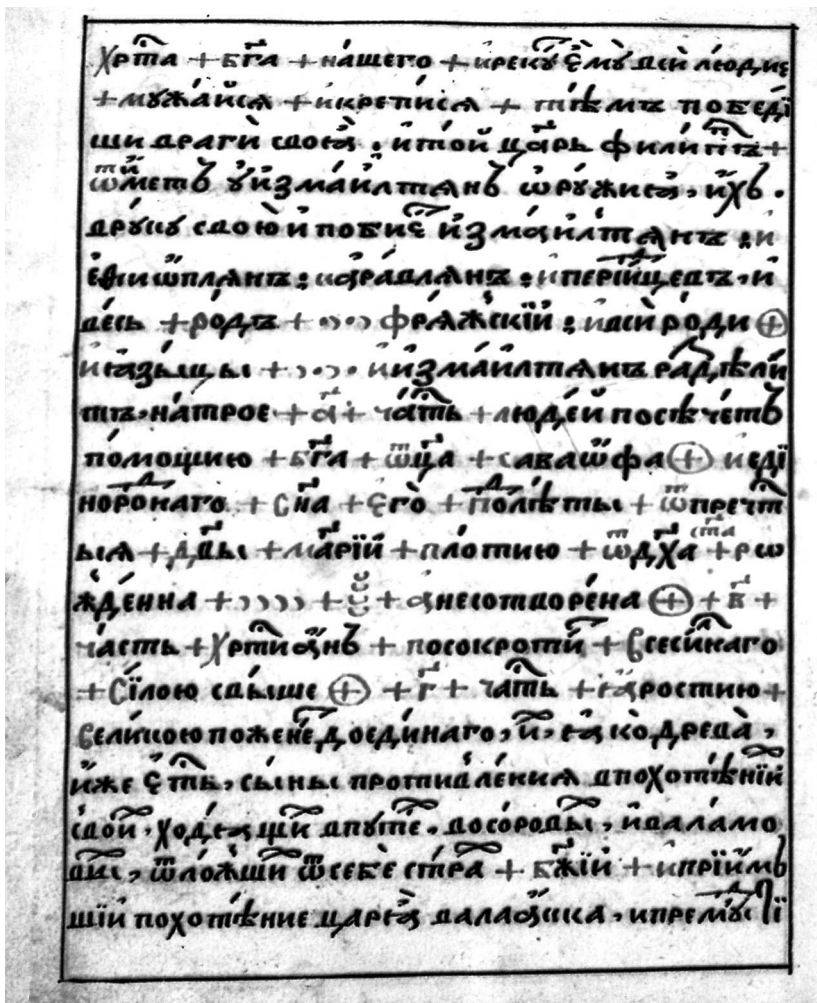 хрⷭ҇та + бг҃а + на́шего + и҆рекꙋ́ є҆мꙋ̀ вси̑ лю́дие
+ мꙋжа́йсѧ + и҆крепи́сѧ + тѣ́мъ победї́
ши враги̑ своѧ̑ . и҆то́й цр҃ь фили́ппъ +
ѿи́метъ ᲂу҆и҆зма́илтѧнъ ѡ҆рꙋ́жиѧ , и҆́хъ .
врꙋ́кꙋ свою̀ и҆побие́ и҆зма́илтѧнъ : и
є҆ѳиѡ҆плѧ́нъ : и҆а҆ра́влѧнъ : и҆пері́йцевъ , и҆
ве́сь + ро́дъ + ,,,, фрѧ́жскїй : и҆вси̑ ро́ди ⊕
и҆ꙗ҆зы́цы + ,,,, и҆и҆зма́илтѧнъ раздѣли́
тъ , на́трое + а҃ + ча́ть + люде́й посѣче́тъ
по́мощию + бг҃а + ѿц҃а + саваѡ҆фа ⊕ и҆еді
норо́наго + сн҃а + є҆гѡ̀ + по́лѣты + ѿпречⷭ҇т
ыѧ + дв҃ы + мр҃їи + пло́тию + ѿдх҃а ст҃а + рѡ
жде́нна + ,,,, + а҆несотворе́на ⊕ + в҃ +
ча́сть + хрⷭ҇тиа́нъ + посокроти́ + всеси́наго
+ сі́лою свы́ше ⊕ + г҃ + ча́ть + ꙗ҆́ростию +
вели́кою пожене́ доеди́наго , и҆ , ꙗ҆́кѡ древа̀ ,
и҆́же є҆́ть , сы́ны противле́ниѧ впохотѣ́нїи
свои́ , ходѧ́щїи впꙋте́ , восо́роды , и҆вала́мо
вы , ѿло́жши ѿсебѐ стра́ + бж҃їй + и҆прїи́мъ
шїи похотѣ́ние царѧ̀ вала́ака , и҆премꙋ́ши